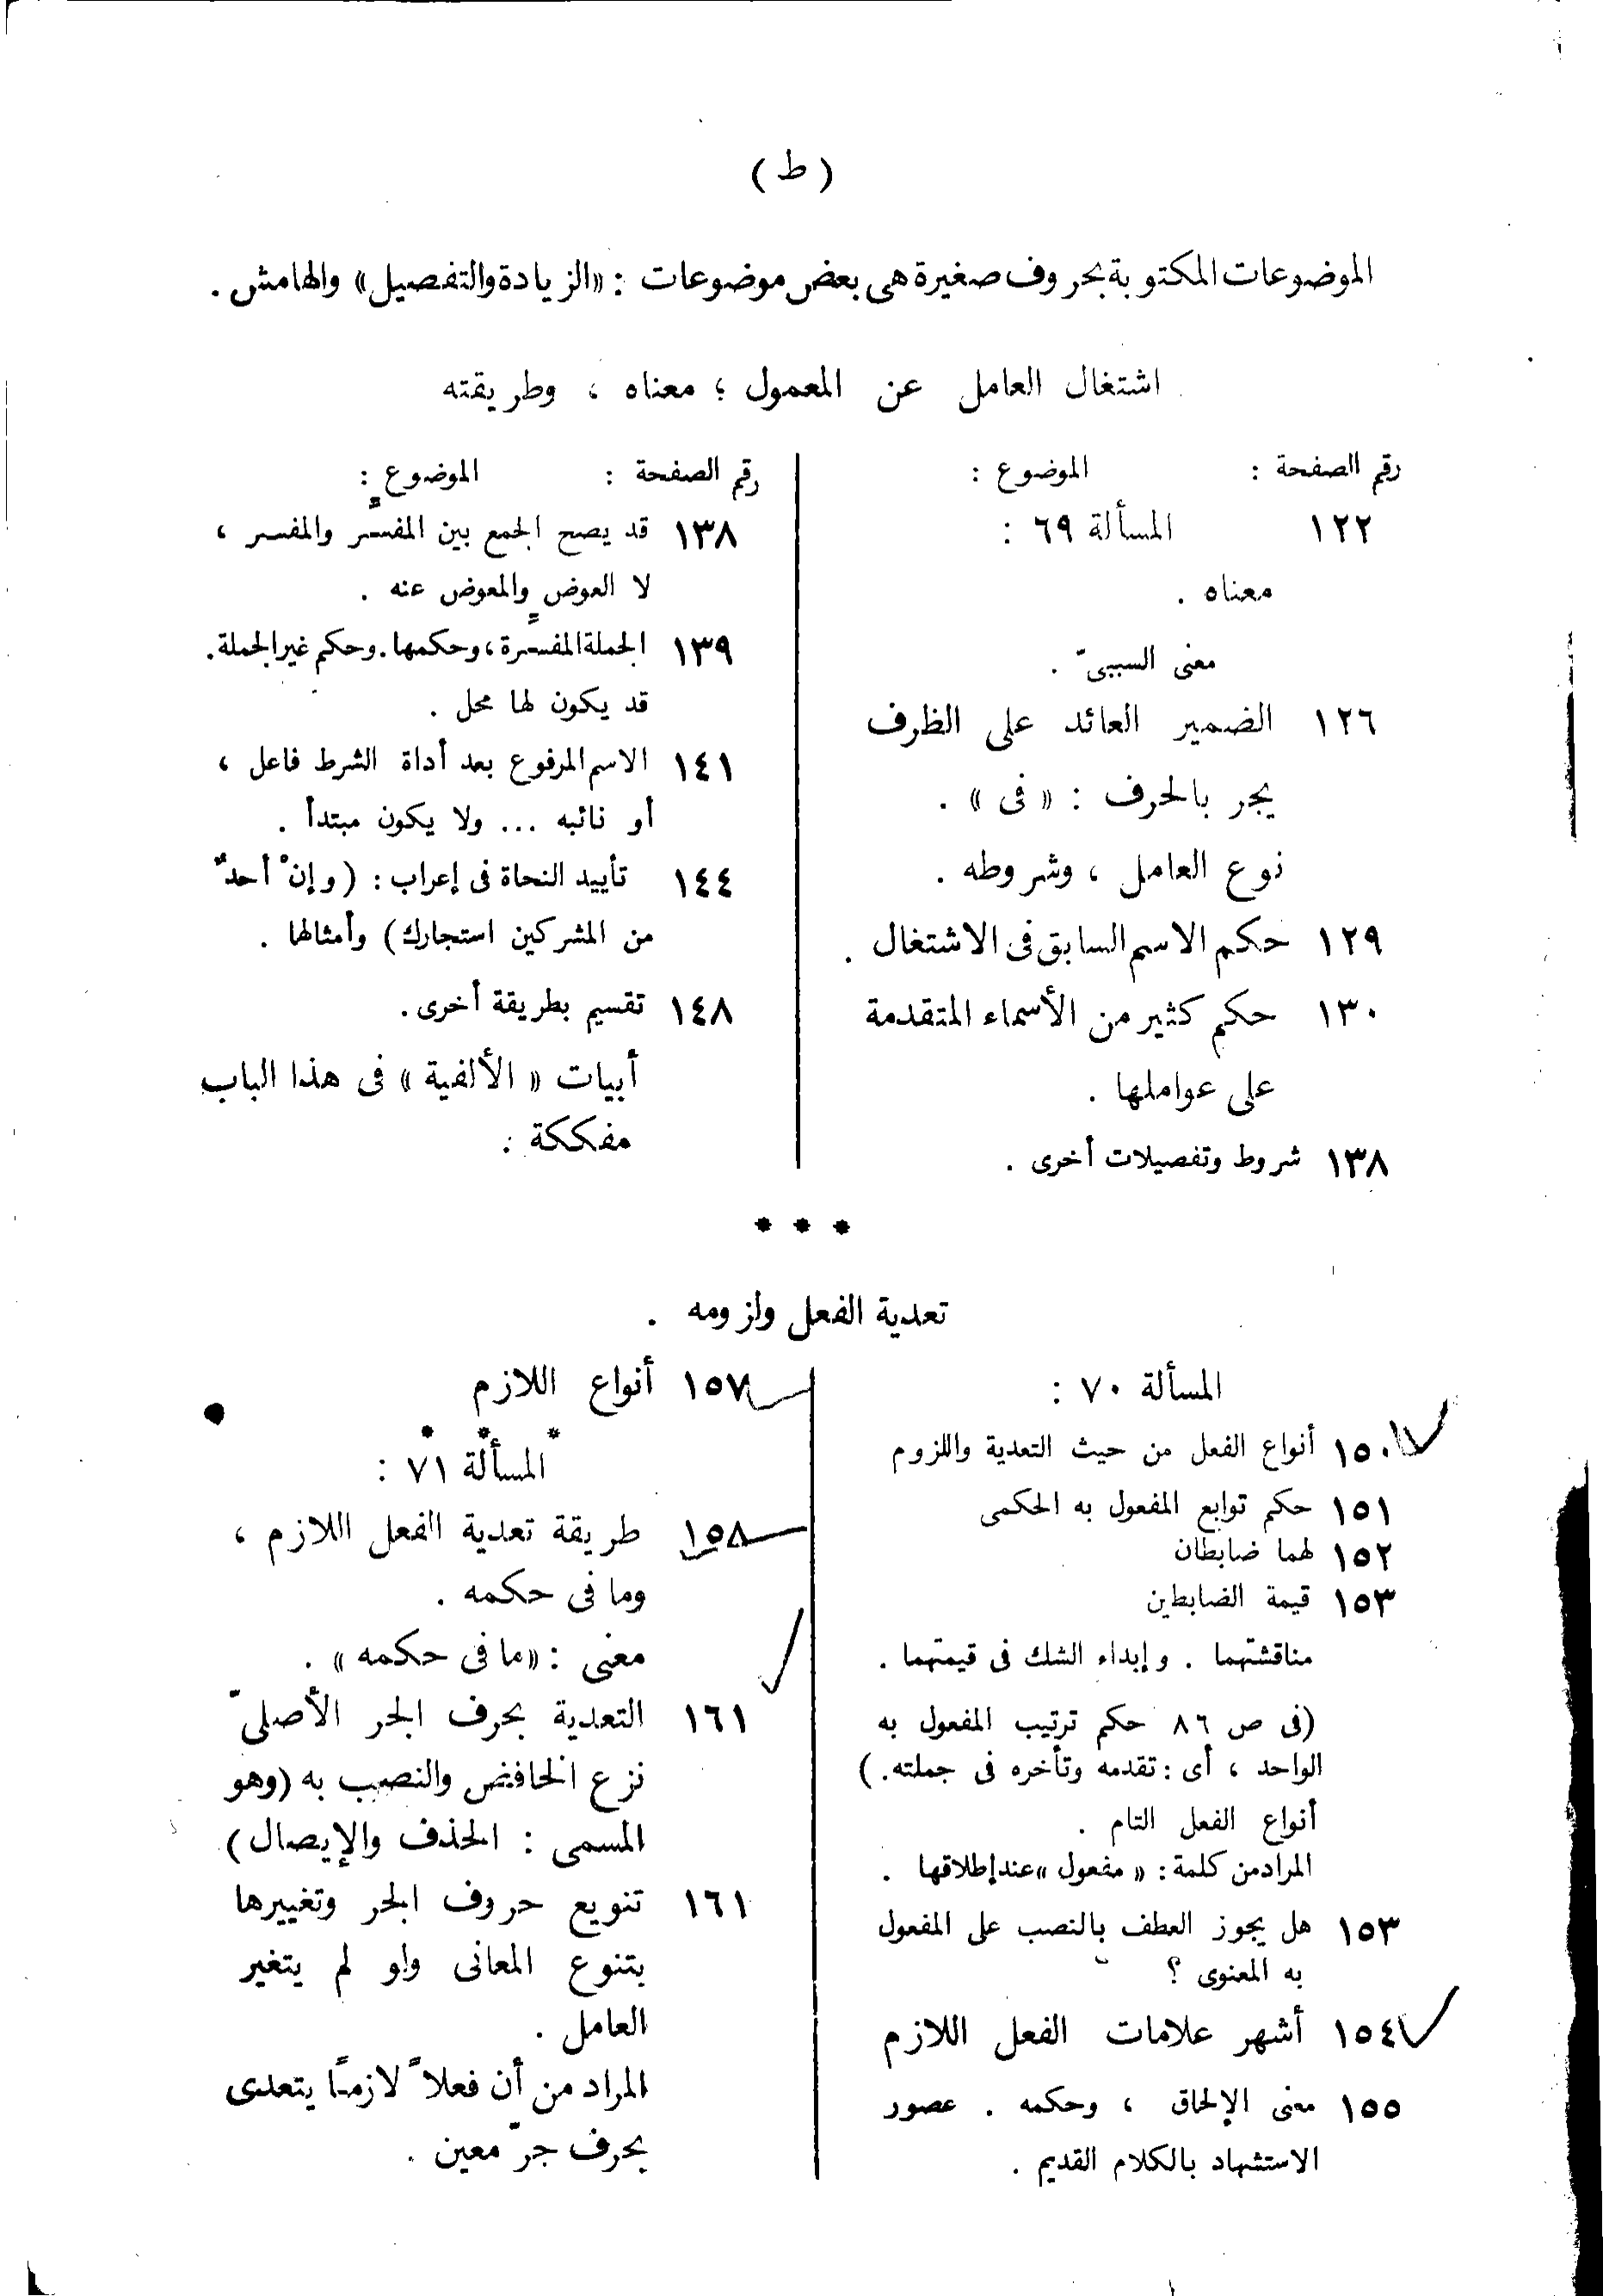 ( ط )
الموضوعات المكتوبة بحروف صغيرة هى بعض موضوعات : «الزيادة والتفصيل» والهامش .
اشتغال العامل عن المعمول ؛ معناه ، وطريقته
رقم الصفحة : الموضوع :
١٢٢ المسألة ٦٩ :
معناه .
معنى السببىّ .
١٢٦ الضمير العائد على الظرف
يجر بالحرف : « فى » .
نوع العامل ، وشروطه .
١٢٩ حكم الاسم السابق فى الاشتغال .
١٣٠ حكم كثير من الأسماء المتقدمة
على عواملها .
١٣٨ شروط وتفصيلات أخرى .
رقم الصفحة : الموضوع :
١٣٨ قد يصح الجمع بين المفسِّر والمفسر ،
لا العوض والمعوض عنه .
١٣٩ الجملة المفسِّرة ، وحكمها . وحكم غير الجملة .
قد يكون لها محل .
١٤١ الاسم المرفوع بعد أداة الشرط فاعل ،
أو نائبه ... ولا يكون مبتدأ .
١٤٤ تأييد النحاة فى إعراب : (وإنْ أحدٌ
من المشركين استجارك) وأمثالها .
١٤٨ تقسيم بطريقة أخرى .
أبيات « الألفية » فى هذا الباب
مفككة .
* * *
تعدية الفعل ولزومه .
المسألة ٧٠ :
١٥٠ أنواع الفعل من حيث التعدية واللزوم
١٥١ حكم توابع المفعول به الحكمى
١٥٢ لهما ضابطان
١٥٣ قيمة الضابطين
مناقشتهما . وإبداء الشك فى قيمتهما .
(فى ص ٨٦ حكم ترتيب المفعول به
الواحد ، أى : تقدمه وتأخره فى جملته .)
أنواع الفعل التام .
المراد من كلمة : « مفعول » عند إطلاقها .
١٥٣ هل يجوز العطف بالنصب على المفعول
به المعنوى ؟
١٥٤ أشهر علامات الفعل اللازم
١٥٥ معنى الإلحاق ، وحكمه . عصور
الاستشهاد بالكلام القديم .
١٥٧ أنواع اللازم
* * *
المسألة ٧١ :
١٥٨ طريقة تعدية الفعل اللازم ،
وما فى حكمه .
معنى : «ما فى حكمه» .
١٦١ التعدية بحرف الجر الأصلىّ
نزع الخافض والنصب به (وهو
المسمى : الحذف والإيصال)
١٦١ تنويع حروف الجر وتغييرها
بتنوع المعانى ولو لم يتغير
العامل .
المراد من أن فعلاً لازماً يتعدى
بحرف جرّ معين .